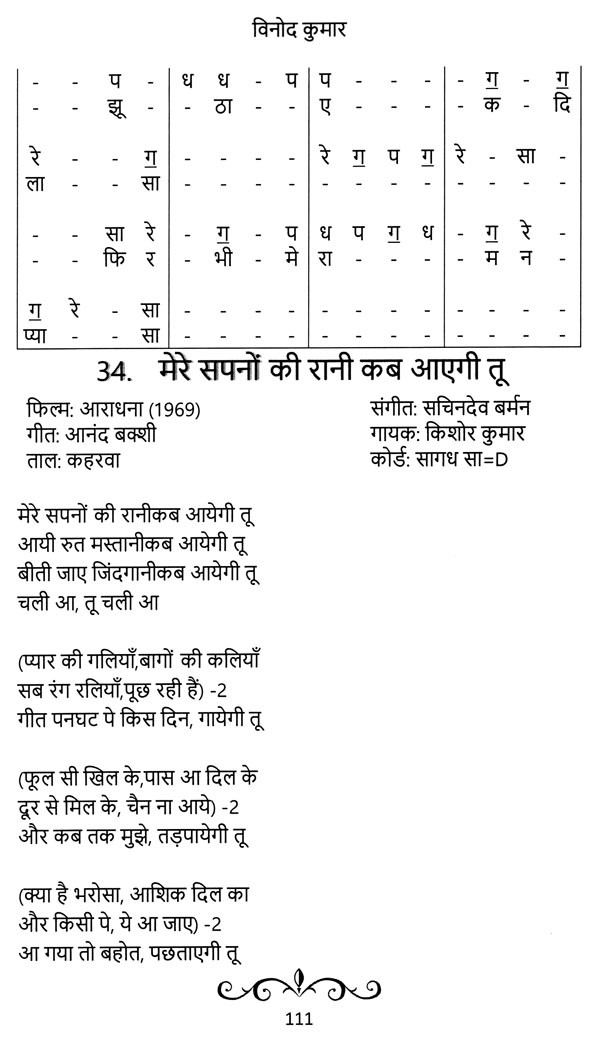 विनोद कुमार
- - प - | ध ध - प | प - - - | - ग॒ - ग॒
- - झू - | - ठा - - | ए - - - | - क - दि
रे - - ग॒ | - - - - | रे ग॒ प ग॒ | रे - सा -
ला - - सा | - - - - | - - - - | - - - -
- - सा रे | - ग॒ - प | ध प ग॒ ध | - ग॒ रे -
- - फि र | - भी - मे | रा - - - | - म न -
ग॒ रे - सा | - - - - | - - - - | - - - -
प्या - - सा | - - - - | - - - - | - - - -
34. मेरे सपनों की रानी कब आएगी तू
फिल्म: आराधना (1969) संगीत: सचिनदेव बर्मन
गीत: आनंद बक्शी गायक: किशोर कुमार
ताल: कहरवा कोर्ड: सागध सा=D
मेरे सपनों की रानीकब आयेगी तू
आयी रुत मस्तानीकब आयेगी तू
बीती जाए जिंदगानीकब आयेगी तू
चली आ, तू चली आ
(प्यार की गलियाँ,बागों की कलियाँ
सब रंग रलियाँ,पूछ रही हैं) -2
गीत पनघट पे किस दिन, गायेगी तू
(फूल सी खिल के,पास आ दिल के
दूर से मिल के, चैन ना आये) -2
और कब तक मुझे, तड़पायेगी तू
(क्या है भरोसा, आशिक दिल का
और किसी पे, ये आ जाए) -2
आ गया तो बहोत, पछताएगी तू
111